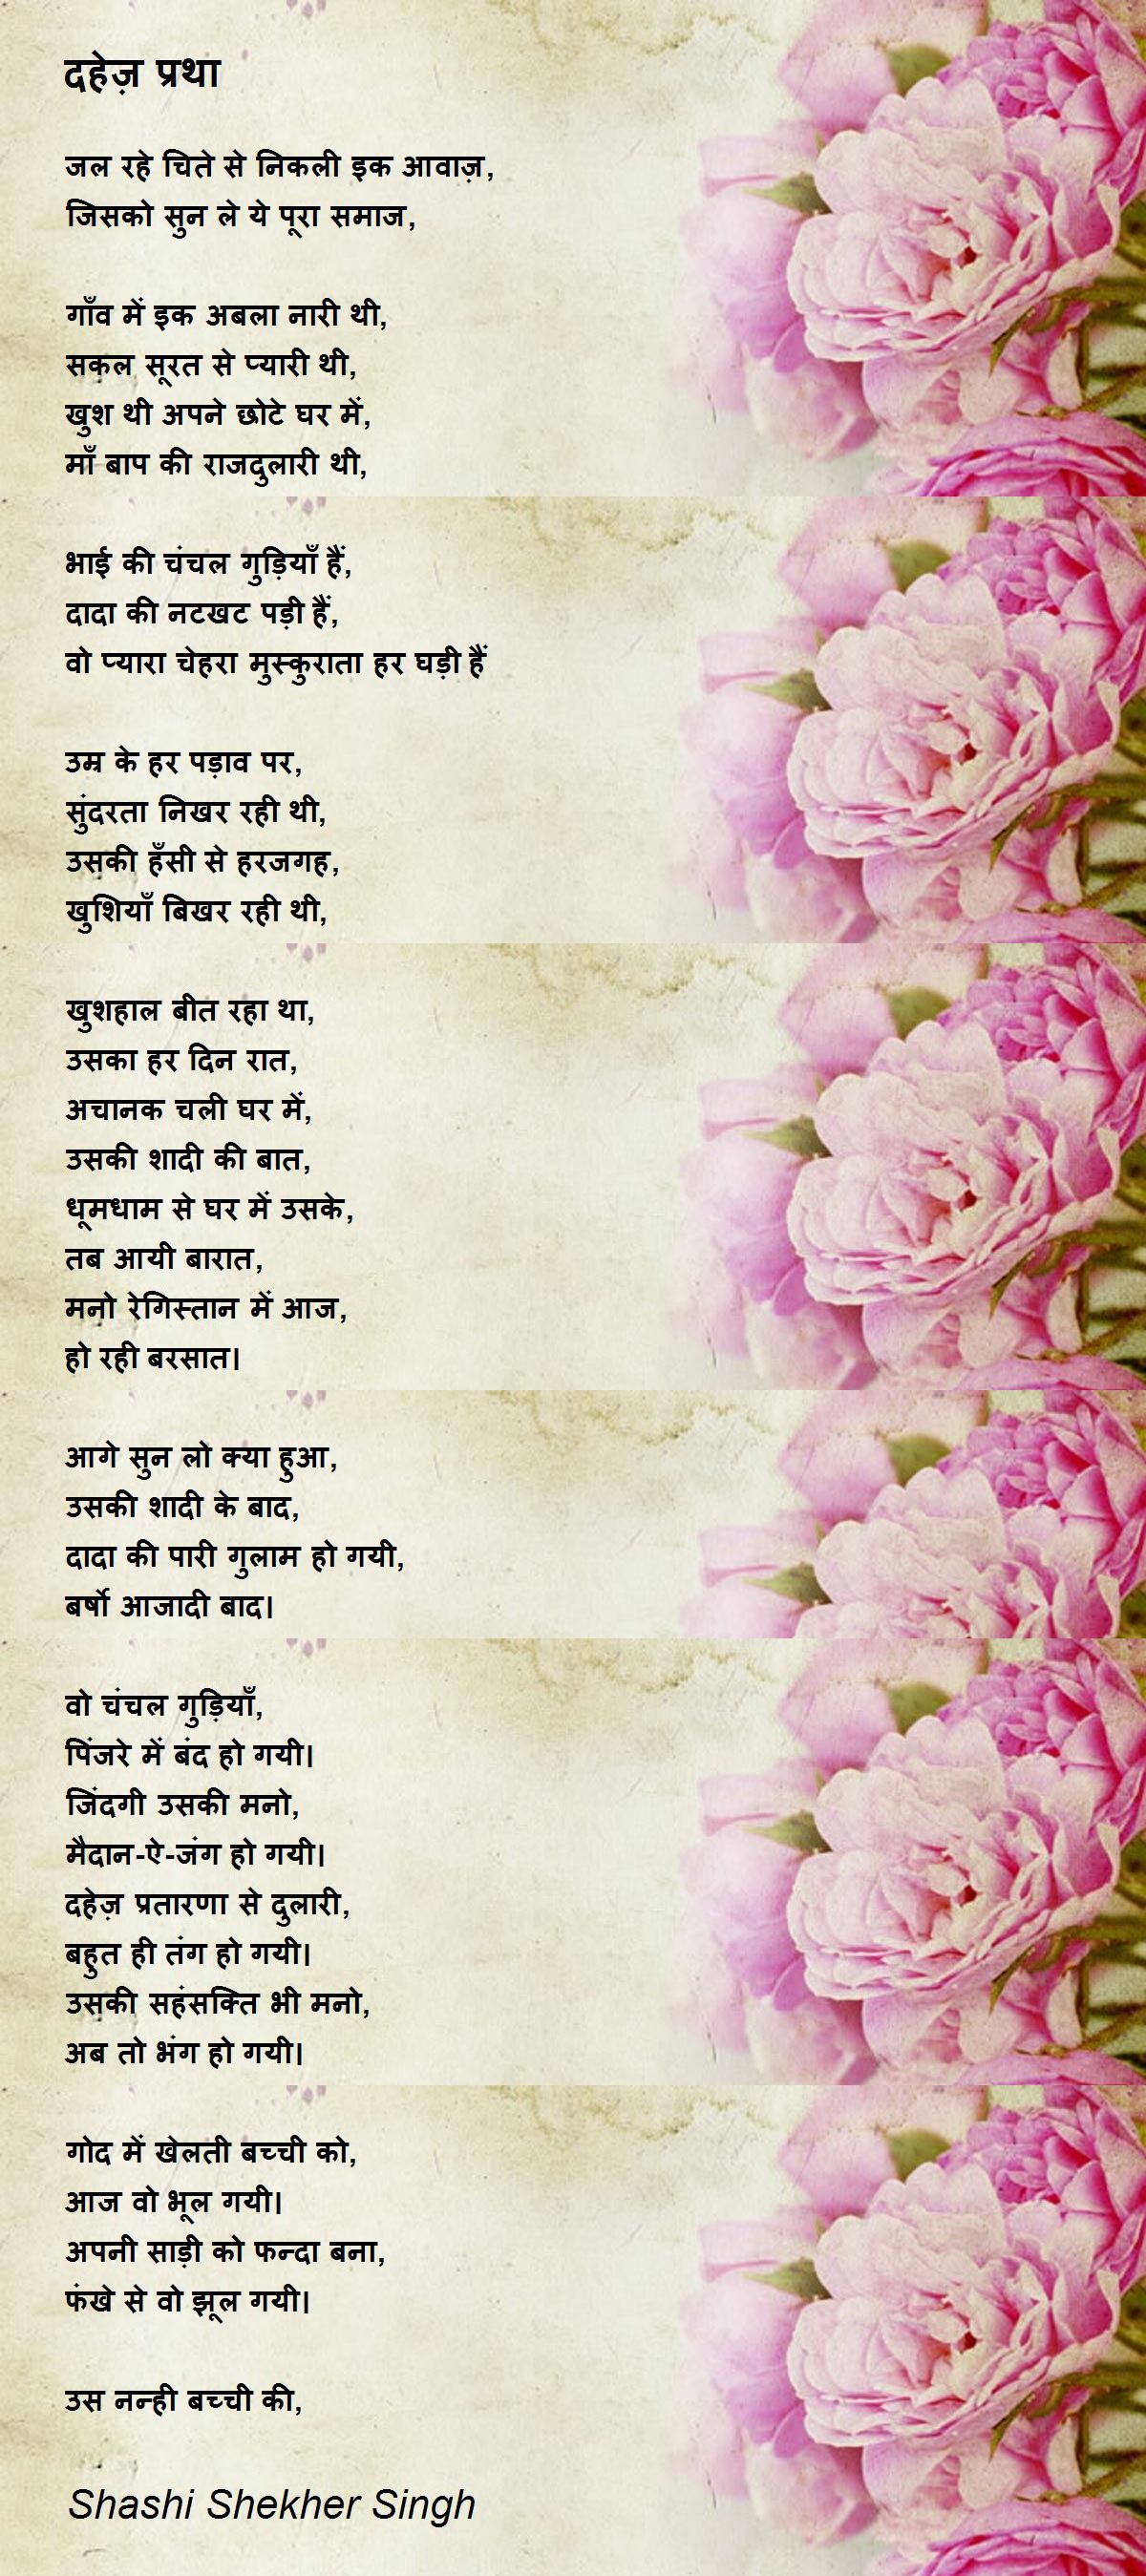 दहेज़ प्रथा
जल रहे चिते से निकली इक आवाज़,
जिसको सुन ले ये पूरा समाज,
गाँव में इक अबला नारी थी,
सकल सूरत से प्यारी थी,
खुश थी अपने छोटे घर में,
माँ बाप की राजदुलारी थी,
भाई की चंचल गुड़ियाँ हैं,
दादा की नटखट पड़ी हैं,
वो प्यारा चेहरा मुस्कुराता हर घड़ी हैं
उम्र के हर पड़ाव पर,
सुंदरता निखर रही थी,
उसकी हँसी से हरजगह,
खुशियाँ बिखर रही थी,
खुशहाल बीत रहा था,
उसका हर दिन रात,
अचानक चली घर में,
उसकी शादी की बात,
धूमधाम से घर में उसके,
तब आयी बारात,
मनो रेगिस्तान में आज,
हो रही बरसात।
आगे सुन लो क्या हुआ,
उसकी शादी के बाद,
दादा की पारी गुलाम हो गयी,
बर्षो आजादी बाद।
वो चंचल गुड़ियाँ,
पिंजरे में बंद हो गयी।
जिंदगी उसकी मनो,
मैदान-ऐ-जंग हो गयी।
दहेज़ प्रतारणा से दुलारी,
बहुत ही तंग हो गयी।
उसकी सहंसक्ति भी मनो,
अब तो भंग हो गयी।
गोद में खेलती बच्ची को,
आज वो भूल गयी।
अपनी साड़ी को फन्दा बना,
फंखे से वो झूल गयी।
उस नन्ही बच्ची की,
Shashi Shekher Singh